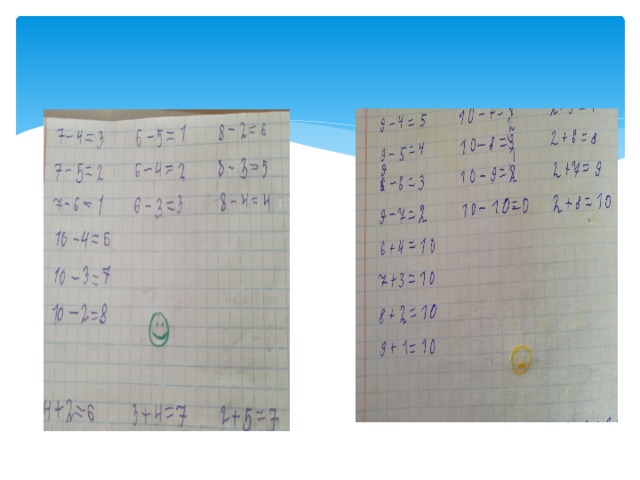 7-4=3 6-5=1 8-2=6
7-5=2 6-4=2 8-3=5
7-6=1 6-3=3 8-4=4
10-4=6
10-3=7
10-2=8
4+2=6 3+4=7 2+5=7
9-4=5
9-5=4 2+6=8
-6=3 10-9= 2+7=9
9-7=2 10-10=0 2+8=10
6+4=10
7+3=10
8+2=10
9+1=10